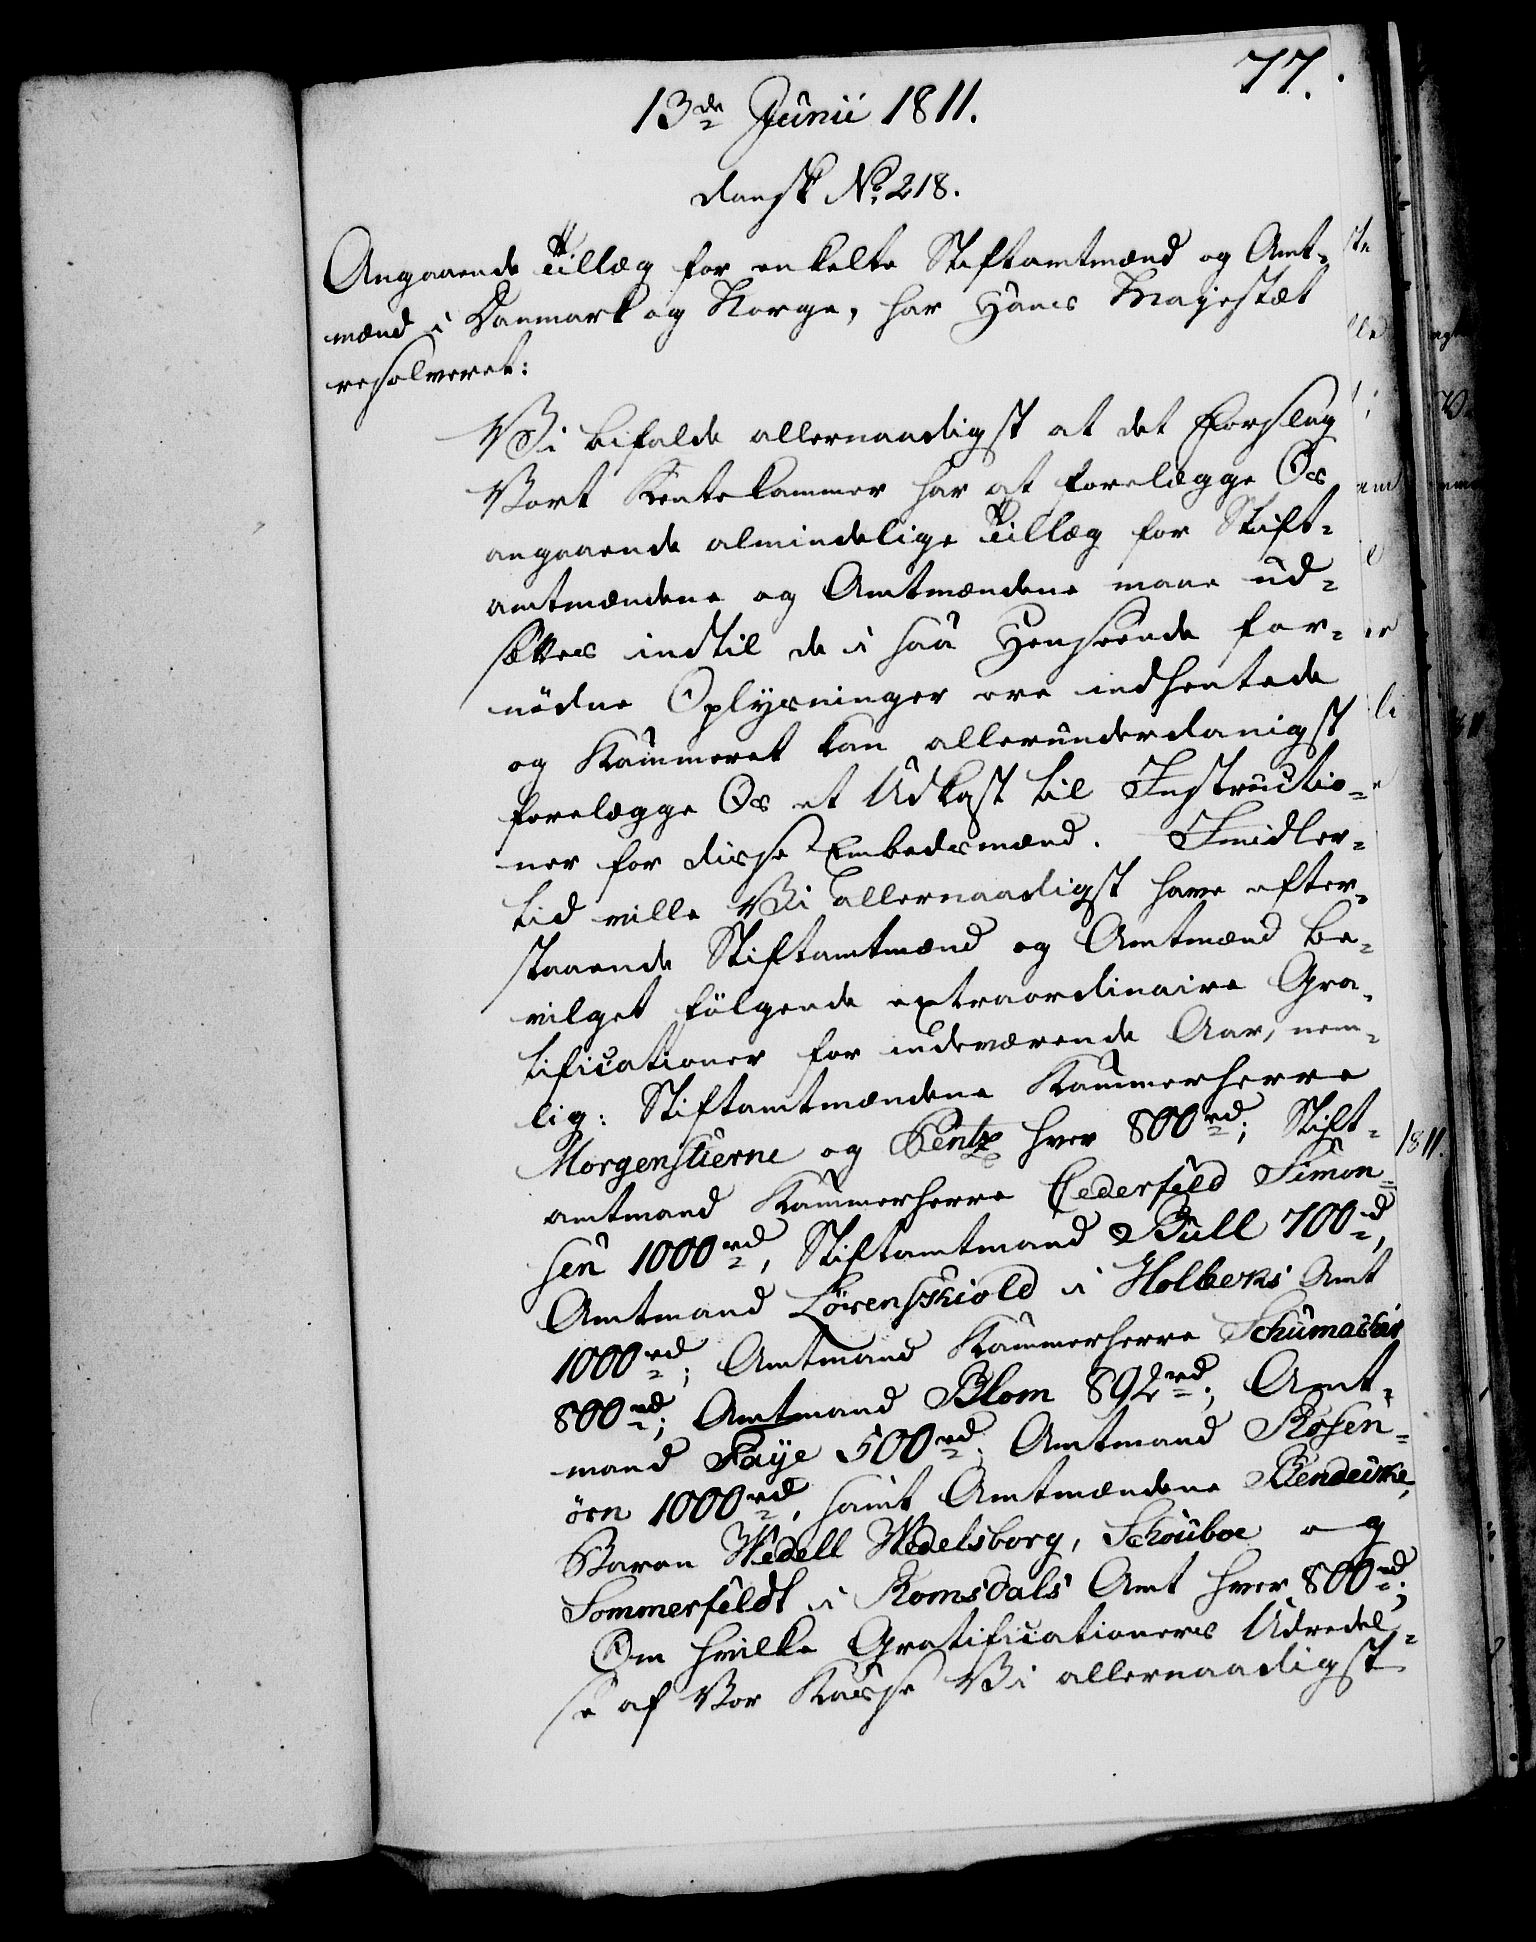 77.
13de Junii 1811.
dansk No. 218.
Angaaende Tillæg for enkelte Stiftamtmænd og Amt-
mænd i Danmark og Norge, har Hans Majestæt
resolveret:
Vi bifalde allernaadigst at det Forslag
Vort Rentekammer har at forelægge Os
angaaende almindelige Tillæg for Stift-
amtmændene og Amtmændene maae ud-
sættes indtil de i saa Henseende for-
nödne Oplysninger ere indhentede
og Kammeret kan allerunderdanigst
forelægge Os et Udkast til Instructio-
ner for disse Embedsmænd. Imidler-
tid ville Vi allernaadigst have efter-
staaende Stiftamtmænd og Amtmænd be-
vilget fölgende extraordinaire Gra-
tificationer for indeværende Aar, nem-
lig: Stiftamtmændene Kammerherre
Morgenstierne og Pentz hver 800 rd; Stift-
amtmand Kammerherre Cederfeld Simon-
sen 1000 rd, Stiftamtmand Bull 700 rd,
Amtmand Lövenskiold i Holbeks Amt
1000 rd; Amtmand Kammerherre Schumacher
800 rd; Amtmand Blom 892 rd; Amt-
mand Faye 500 rd; Amtmand Rosen-
örn 1000 rd, samt Amtmændene Bendeike,
Baron Wedell Wedelsborg, Schouboe og
Sommerfeldt i Romsdals Amt hver 800 rd;
Om hvilke Gratificationers Udredel-
se af Vor Kasse Vi allernaadigst
1811.